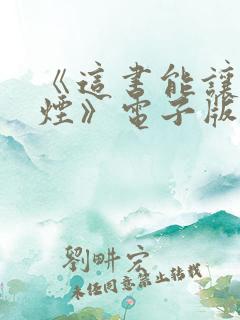 《這書能讓
煙》電子版
劉畊宏
未經同意禁止轉載